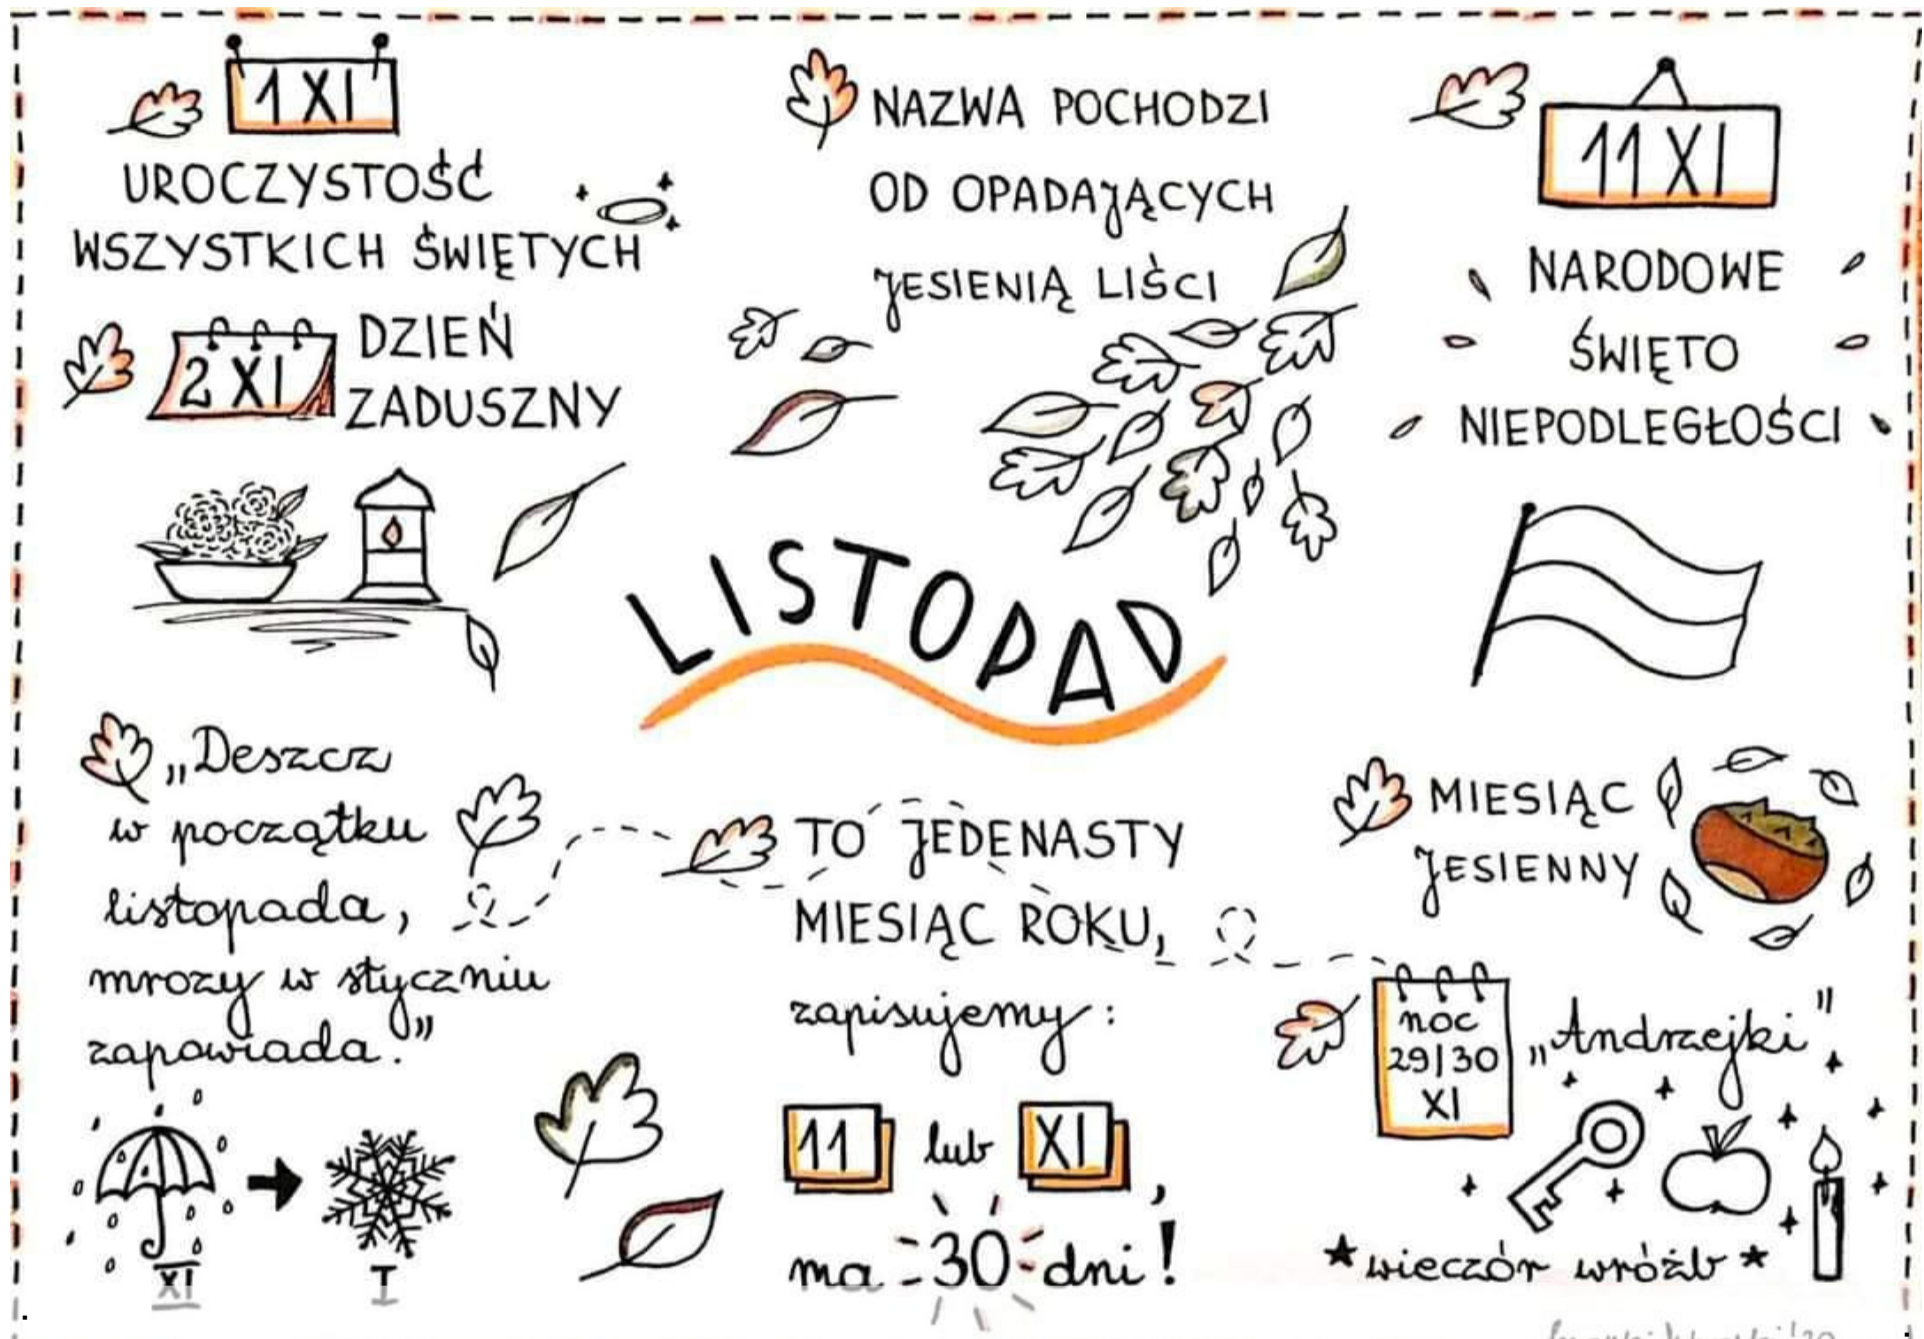 1 XI
UROCZYSTOŚĆ
WSZYSTKICH ŚWIĘTYCH
2 XI
DZIEŃ
ZADUSZNY
NAZWA POCHODZI
OD OPADAJĄCYCH
JESIENIĄ LIŚCI
11 XI
NARODOWE
ŚWIĘTO
NIEPODLEGŁOŚCI
LISTOPAD
„Deszcz
w początku
listopada,
mrozy w styczniu
zapowiada."
XI
I
TO JEDENASTY
MIESIĄC ROKU,
zapisujemy:
11 lub XI,
ma 30 dni!
MIESIĄC
JESIENNY
noc
29/30
XI
„Andrzejki"
*wieczór wróżb*